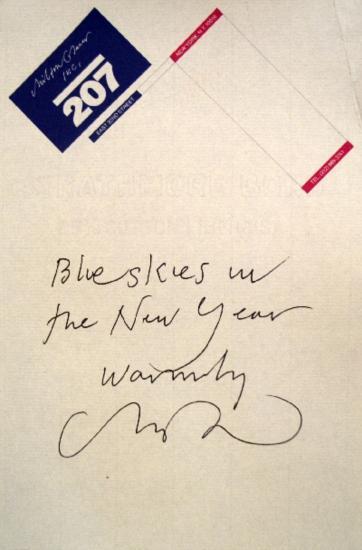 Milton Glaser
INC.
207
EAST 32ND STREET
NEW YORK N.Y. 10016
Blue skies in
the New Year
Warmly